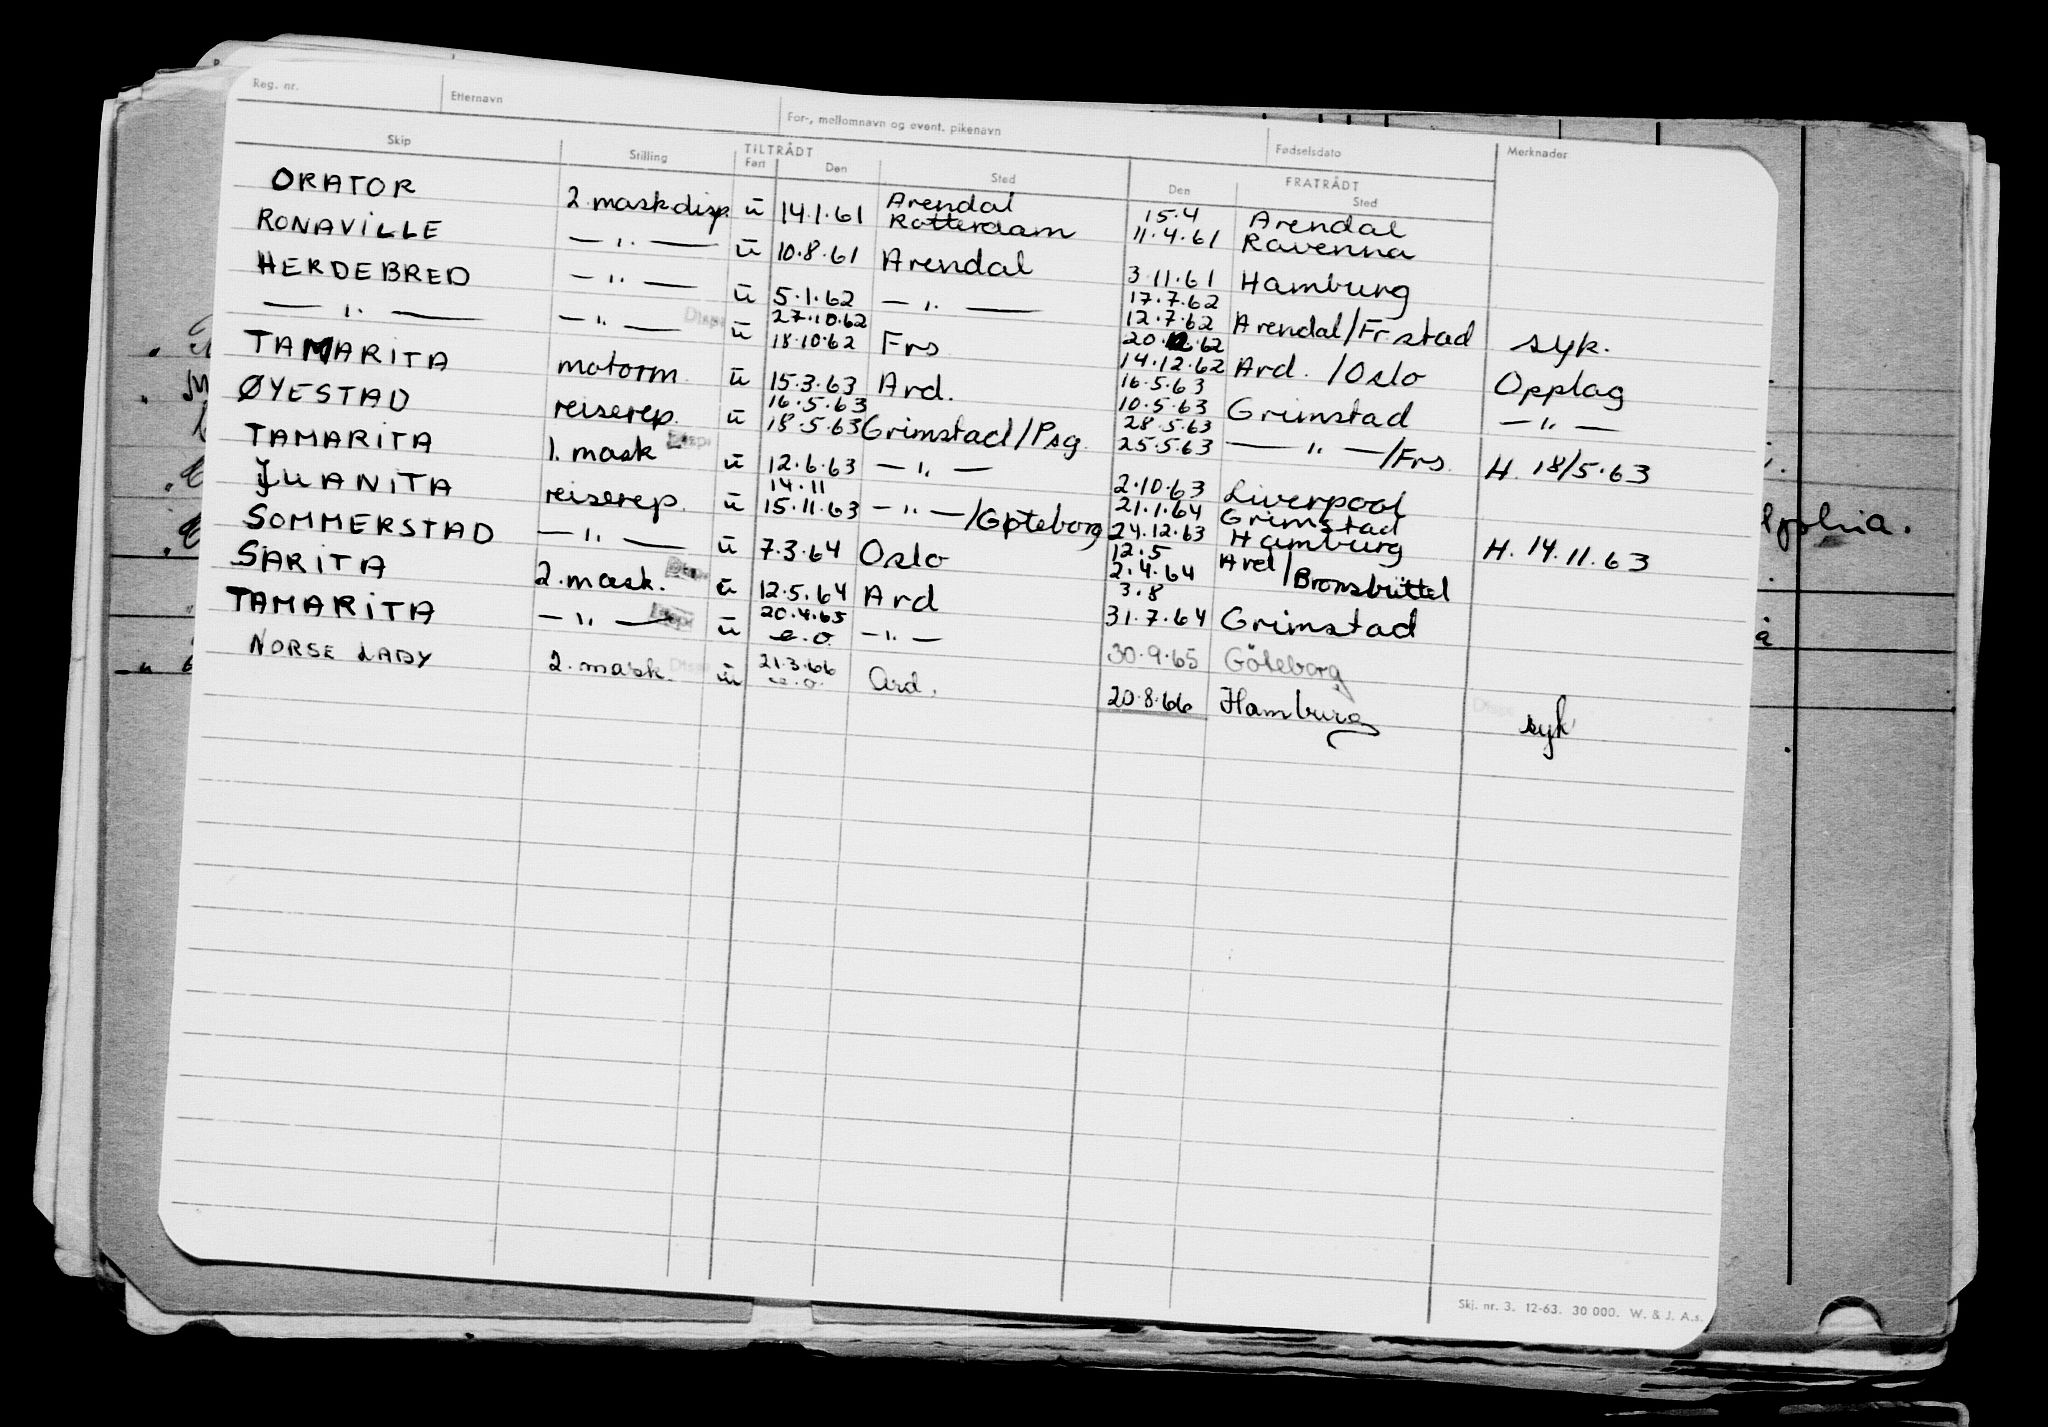 Reg. nr. Etternavn For-, mellomnavn og event. pikenavn Fødselsdato Merknader
Skip Stilling TILTRÅDT Fart Den Sted FRATRÅDT Den Sted
ORATOR 2. mask disp. ü 14.1.61 Arendal Rotterdam 15.4 11.4.61 Arendal Ravenna
RONAVILLE — " — ü 10.8.61 Arendal 3.11.61 Hamburg
HERDEBRED — " — ü 5.1.62 — " — 17.7.62 12.7.62 Arendal/Fr.stad syk.
— " — — " — ü 27.10.62 18.10.62 Frs 20.12.62 14.12.62 Ard. /Oslo Opplag
TAMARITA motorm. ü 15.3.63 Ard. 16.5.63 10.5.63 Grimstad — " —
ØYESTAD reiserep. ü 16.5.63 18.5.63 Grimstad/Psg. 28.5.63 25.5.63 — " —/Frs. H. 18/5.63
TAMARITA 1. mask ü 12.6.63 — " — 2.10.63 Liverpool
JUANITA reiserep. ü 14.11 15.11.63 — " —/Göteborg 21.1.64 24.12.63 Grimstad Hamburg H. 14.11.63
SOMMERSTAD — " — ü 7.3.64 Oslo 12.5 2.4.64 Ard/Brunsbüttel
SARITA 2. mask. ü 12.5.64 Ard 3.8 31.7.64 Grimstad
TAMARITA — " — ü 20.4.65 e.o. — " — 30.9.65 Göteborg
NORSE LADY 2. mask. Disp ü 21.3.66 e.o. Ard. 20.8.66 Hamburg syk
Skj. nr. 3. 12-63. 30 000. W. & J. A.s.